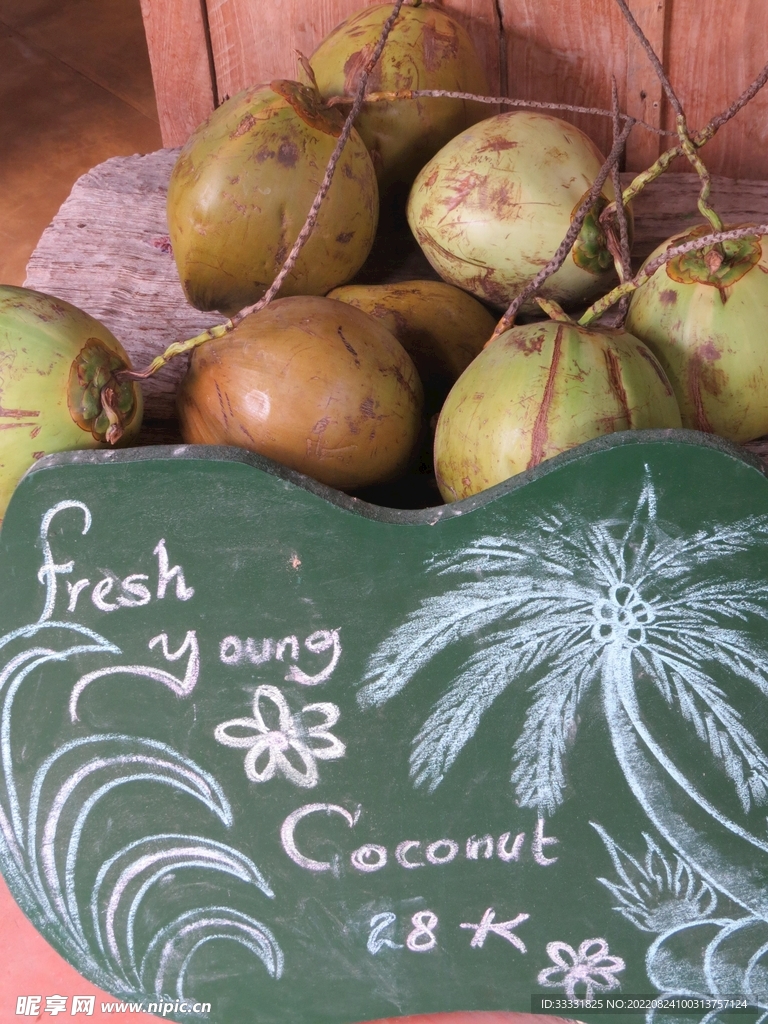 fresh
young
Coconut
28 K
昵享网 www.nipic.cn
ID:33331825 NO:20220824100313757124